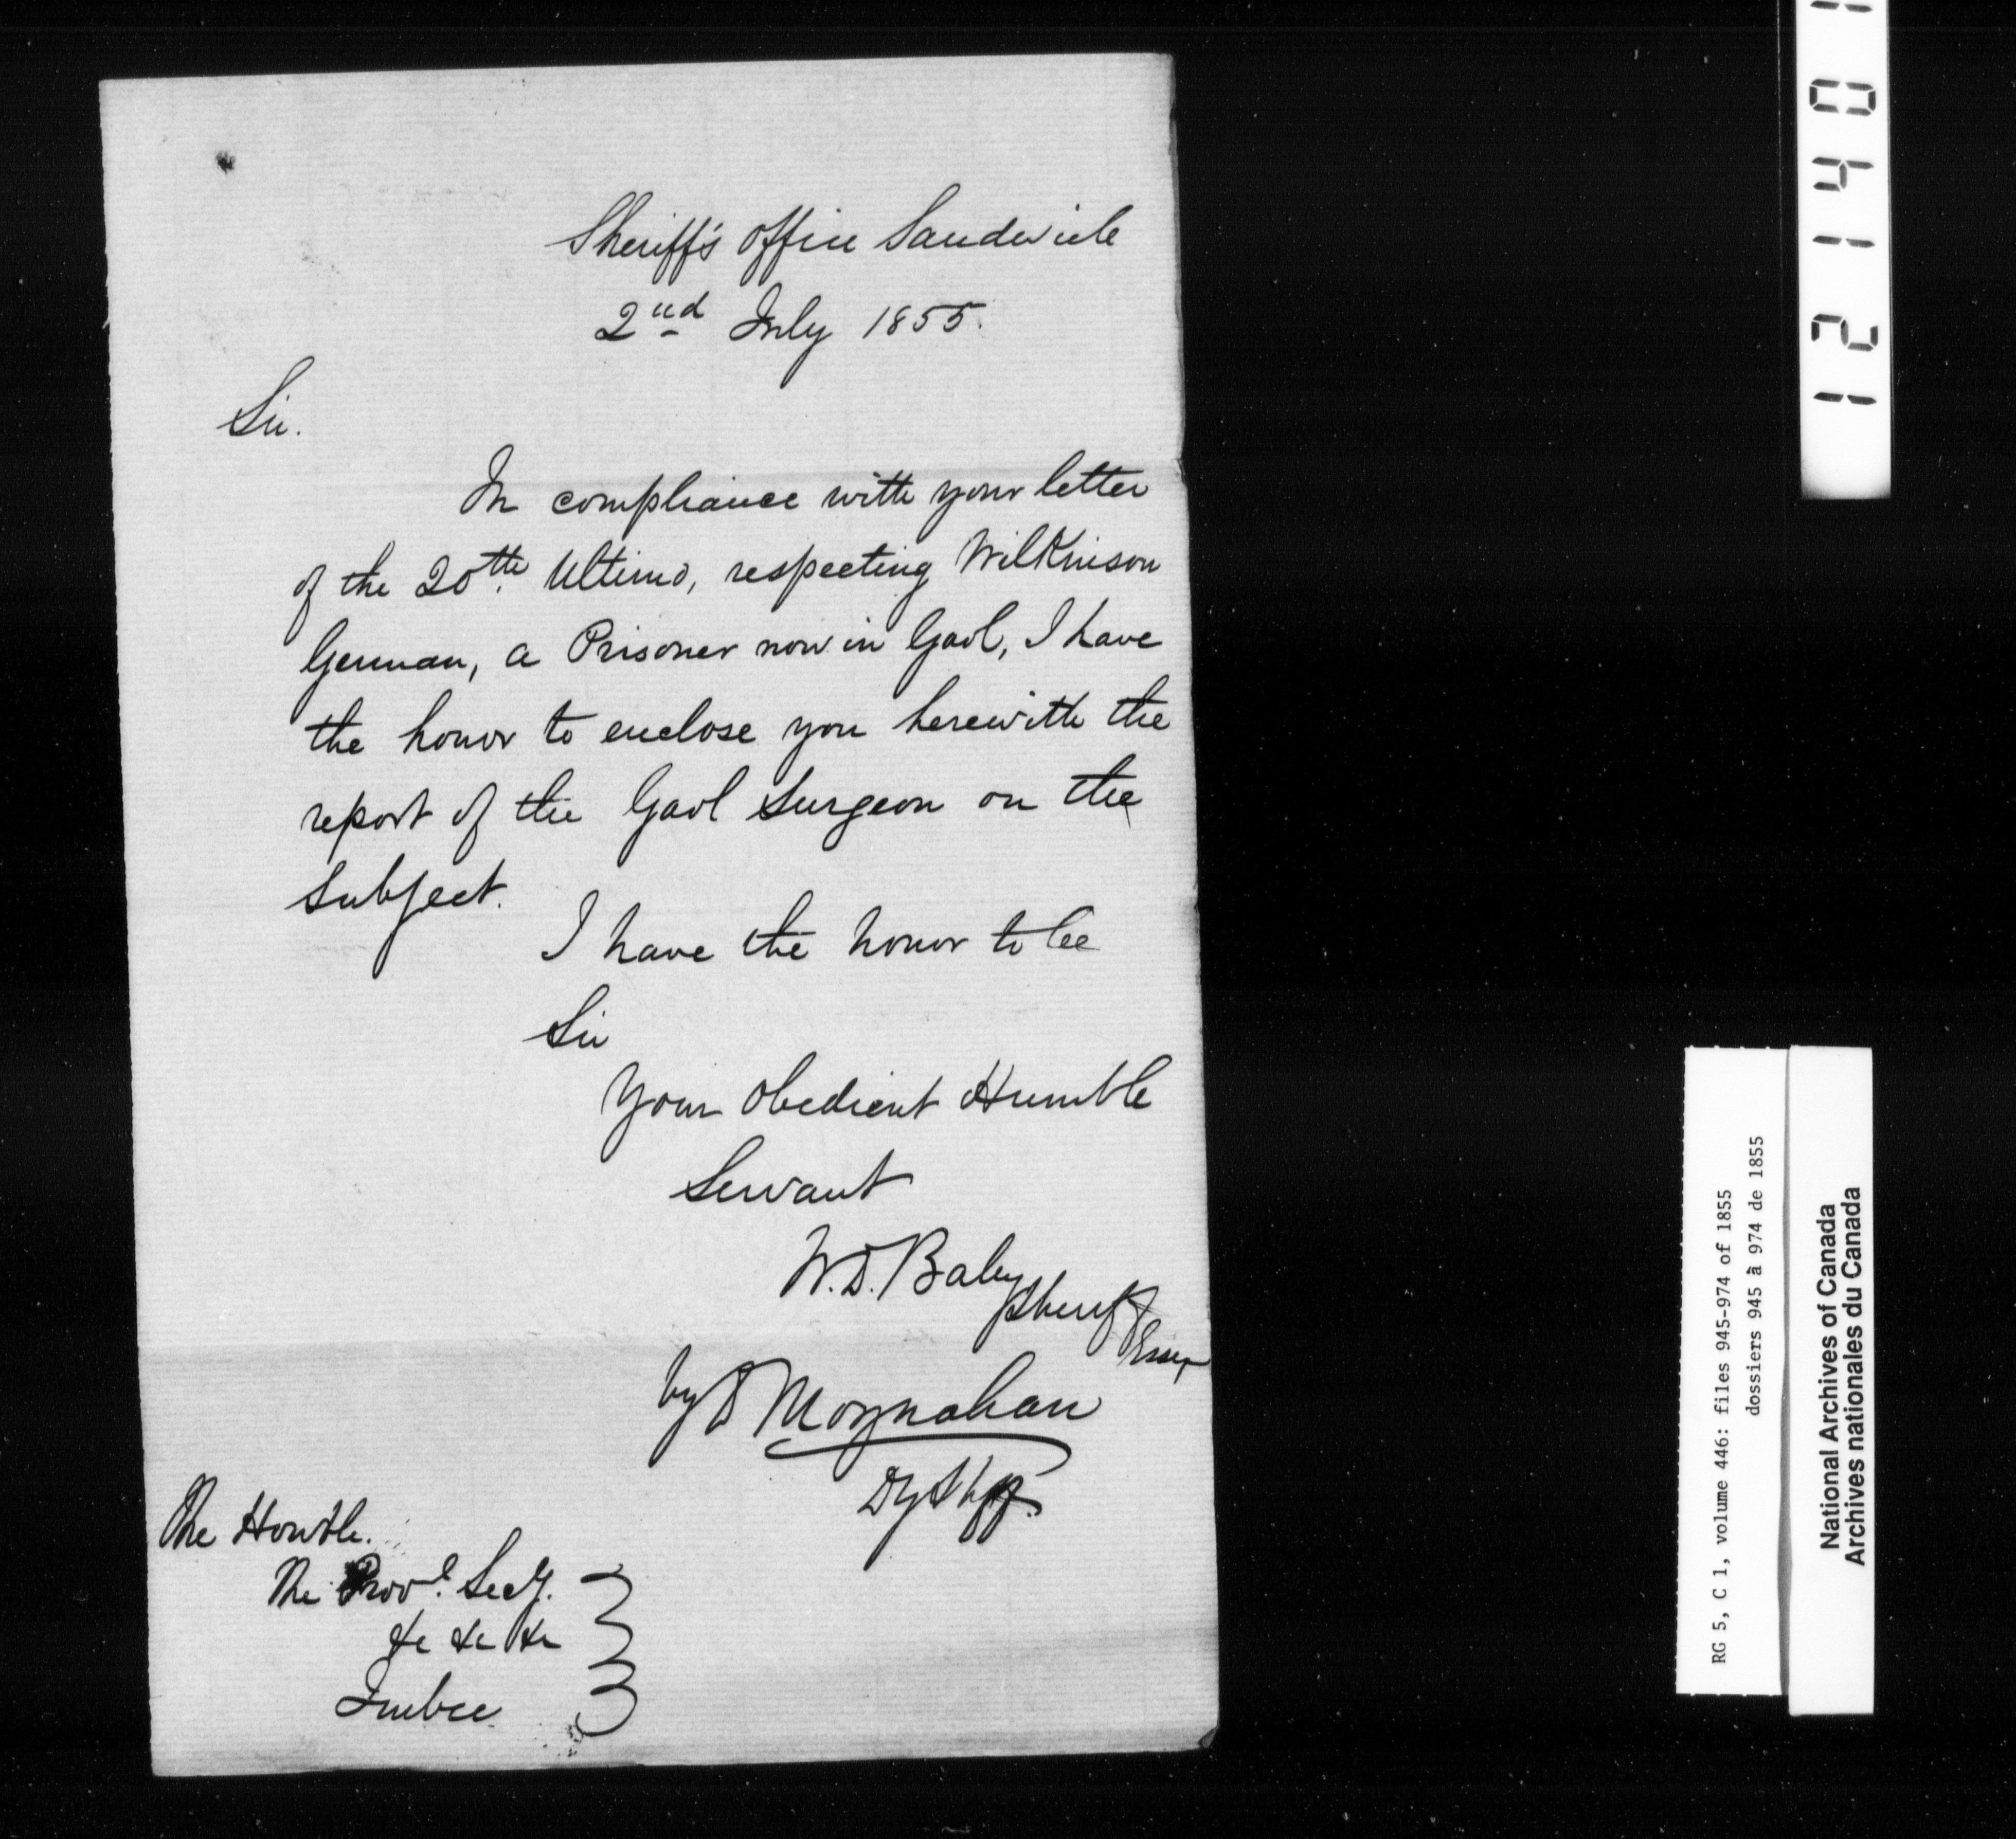 Sheriff's Office Sandwich
2nd July 1855.
Sir.
In compliance with your letter
of the 20th. Ultimo, respecting Wilkinson
German, a Prisoner now in Gaol, I have
the honor to enclose you herewith the
report of the Gaol Surgeon on the
Subject.
I have the honor to be
Sir
Your Obedient Humble
Servant
W.D. Baby
Sheriff
Essex
by D Moynahan
Dy Shff.
The Honble.
The Provl. Secy.
&c &c &c
Quebec
12140
RG 5, C 1, volume 446: files 945-974 of 1855
dossiers 945 à 974 de 1855
National Archives of Canada
Archives nationales du Canada